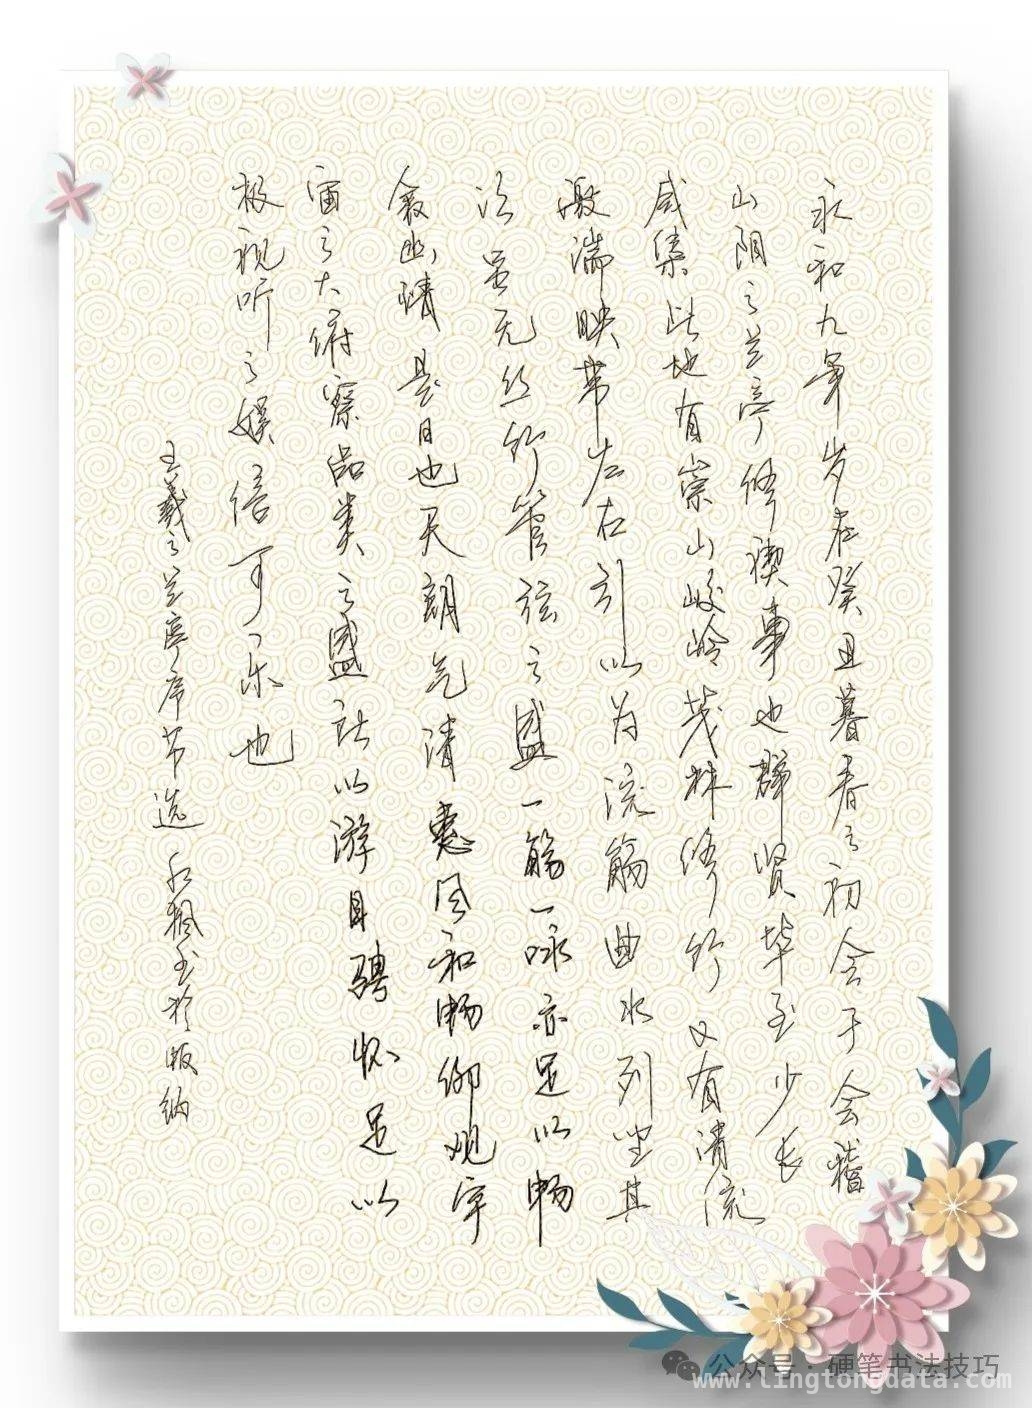 永和九年岁在癸丑暮春之初会于会稽
山阴之兰亭修禊事也群贤毕至少长
咸集此地有崇山峻岭茂林修竹又有清流
激湍映带左右引以为流觞曲水列坐其
次虽无丝竹管弦之盛一觞一咏亦足以畅
叙幽情是日也天朗气清惠风和畅仰观宇
宙之大俯察品类之盛所以游目骋怀足以
极视听之娱信可乐也
王羲之兰亭序节选 红枫书于版纳
公众号·硬笔书法技巧
www.lingtongdata.com